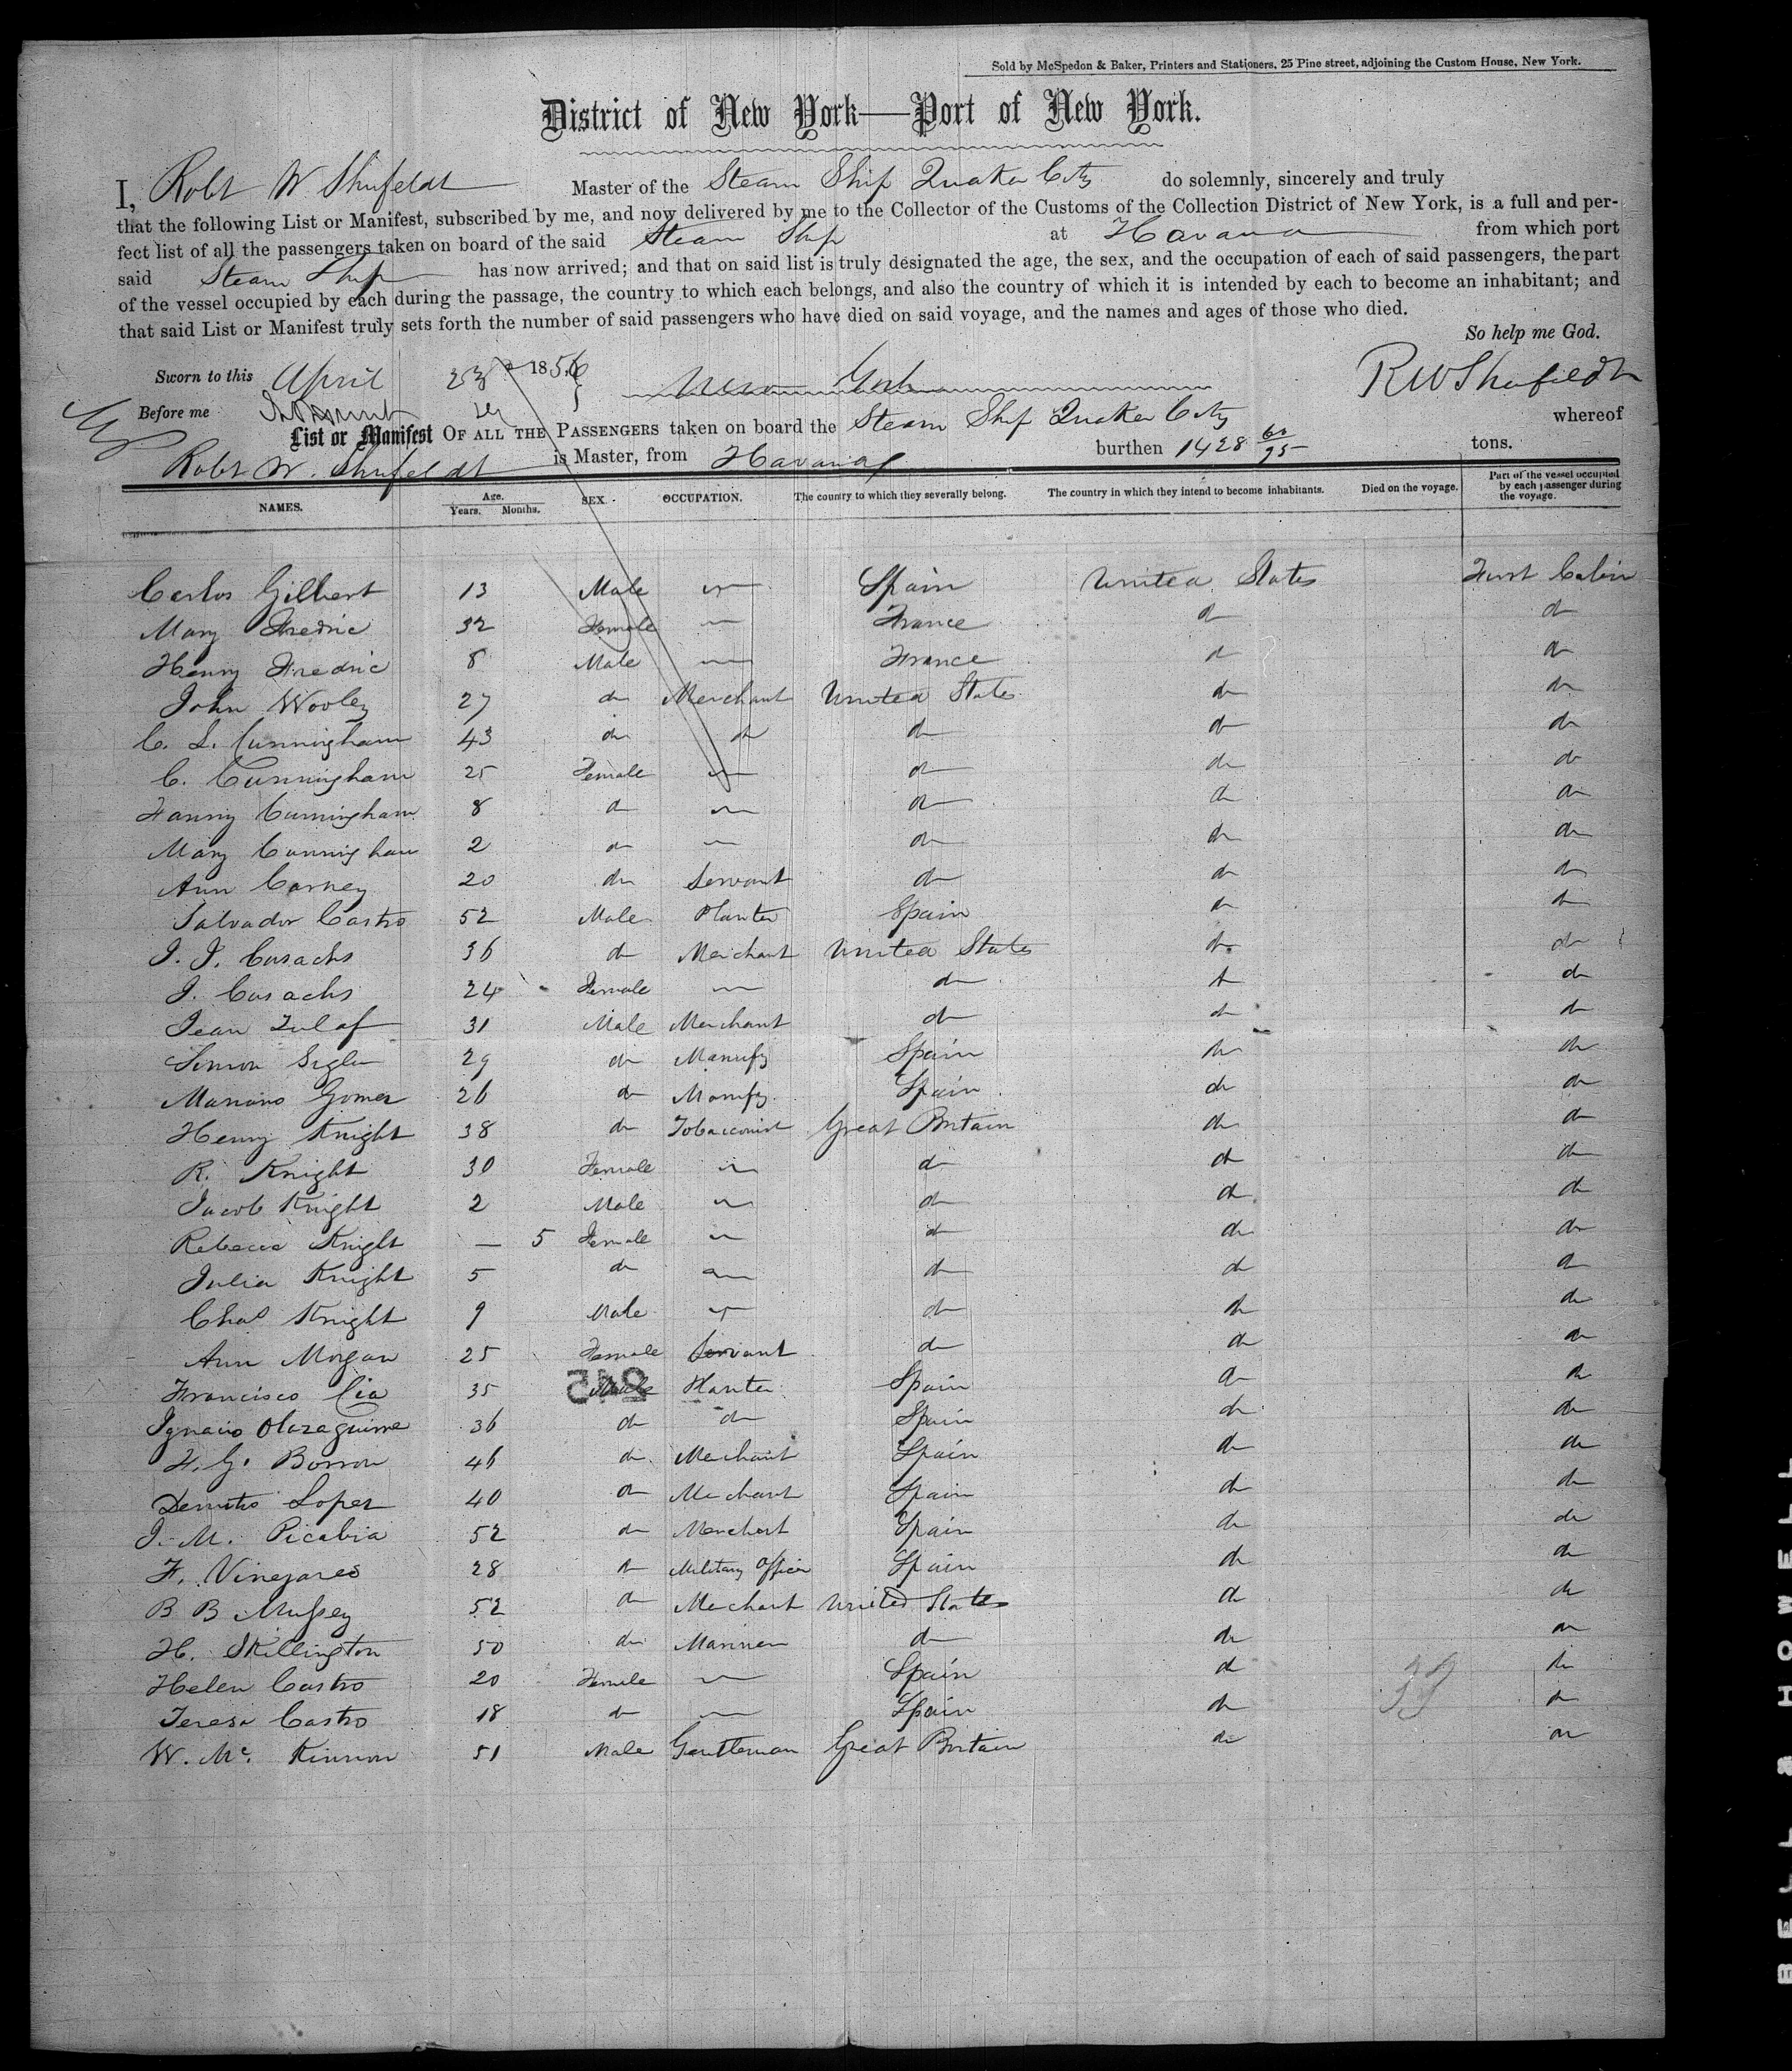 Sold by McSpedon & Baker, Printers and Stationers, 25 Pine street, adjoining the Custom House, New York.
District of New York—Port of New York.
I, Robt W Shufeldt Master of the Steam Ship Quaker City do solemnly, sincerely and truly
that the following List or Manifest, subscribed by me, and now delivered by me to the Collector of the Customs of the Collection District of New York, is a full and per-
fect list of all the passengers taken on board of the said Steam Ship at Havana from which port
said Steam Ship has now arrived; and that on said list is truly designated the age, the sex, and the occupation of each of said passengers, the part
of the vessel occupied by each during the passage, the country to which each belongs, and also the country of which it is intended by each to become an inhabitant; and
that said List or Manifest truly sets forth the number of said passengers who have died on said voyage, and the names and ages of those who died.
So help me God.
Sworn to this April 23 1856 New York RW Shufeldt
Before me
List or Manifest OF ALL THE PASSENGERS taken on board the Steam Ship Quaker City whereof
Robt W. Shufeldt is Master, from Havana burthen 1428 60/95 tons.
NAMES. Age. Years. Months. SEX. OCCUPATION. The country to which they severally belong. The country in which they intend to become inhabitants. Died on the voyage. Part of the vessel occupied by each passenger during the voyage.
Carlos Gilbert 13 Male — Spain United States First Cabin
Mary Fredric 32 Female — France do do
Henry Fredric 8 Male — France do do
John Wooley 27 do Merchant United States do do
C. L. Cunningham 43 do do do do do
C. Cunningham 25 Female — do do do
Fanny Cunningham 8 do — do do do
Mary Cunningham 2 do — do do do
Ann Carney 20 do Servant do do do
Salvador Castro 52 Male Planter Spain do do
J. J. Casachs 36 do Merchant United States do do
J. Casachs 24 Female — do do do
Jean 31 Male Merchant do do do
Simon 29 do Manufy Spain do do
Mariano Gomez 26 do Manufy. Spain do do
Henry Knight 38 do Tobacconist Great Britain do do
R. Knight 30 Female — do do do
Jacob Knight 2 Male — do do do
Rebecca Knight — 5 Female — do do do
Julia Knight 5 do — do do do
Chas Knight 9 Male — do do do
Ann Morgan 25 Female Servant do do do
245
Francisco Cia 35 Male Planter Spain do do
Ignacio Olazaguirre 36 do do Spain do do
F. G. Borron 46 do Merchant Spain do do
Demitio Lopez 40 do Merchant Spain do do
J. M. Picabia 52 do Merchant Spain do do
F. Vinegares 28 do Military Officer Spain do do
B B Mussey 52 do Merchant United States do do
H. Skillington 50 do Mariner do do do
Helen Castro 20 Female — Spain do do
33
Teresa Castro 18 do — Spain do do
W. Mc. Kinnon 51 Male Gentleman Great Britain do do
BELL & HOWELL